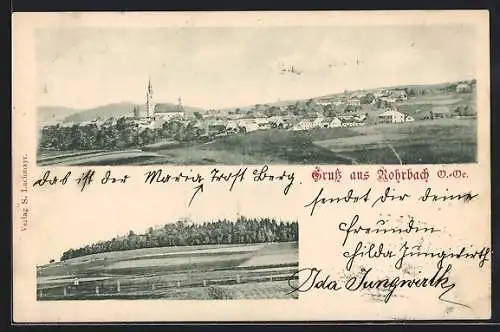 Gruß aus Rohrbach O.-Oe.
das ist der Maria Trost Berg.
sendet dir deine
freundin
Hilda Jungwirth
Ida Jungwirth
Verlag S. Lachmayr.